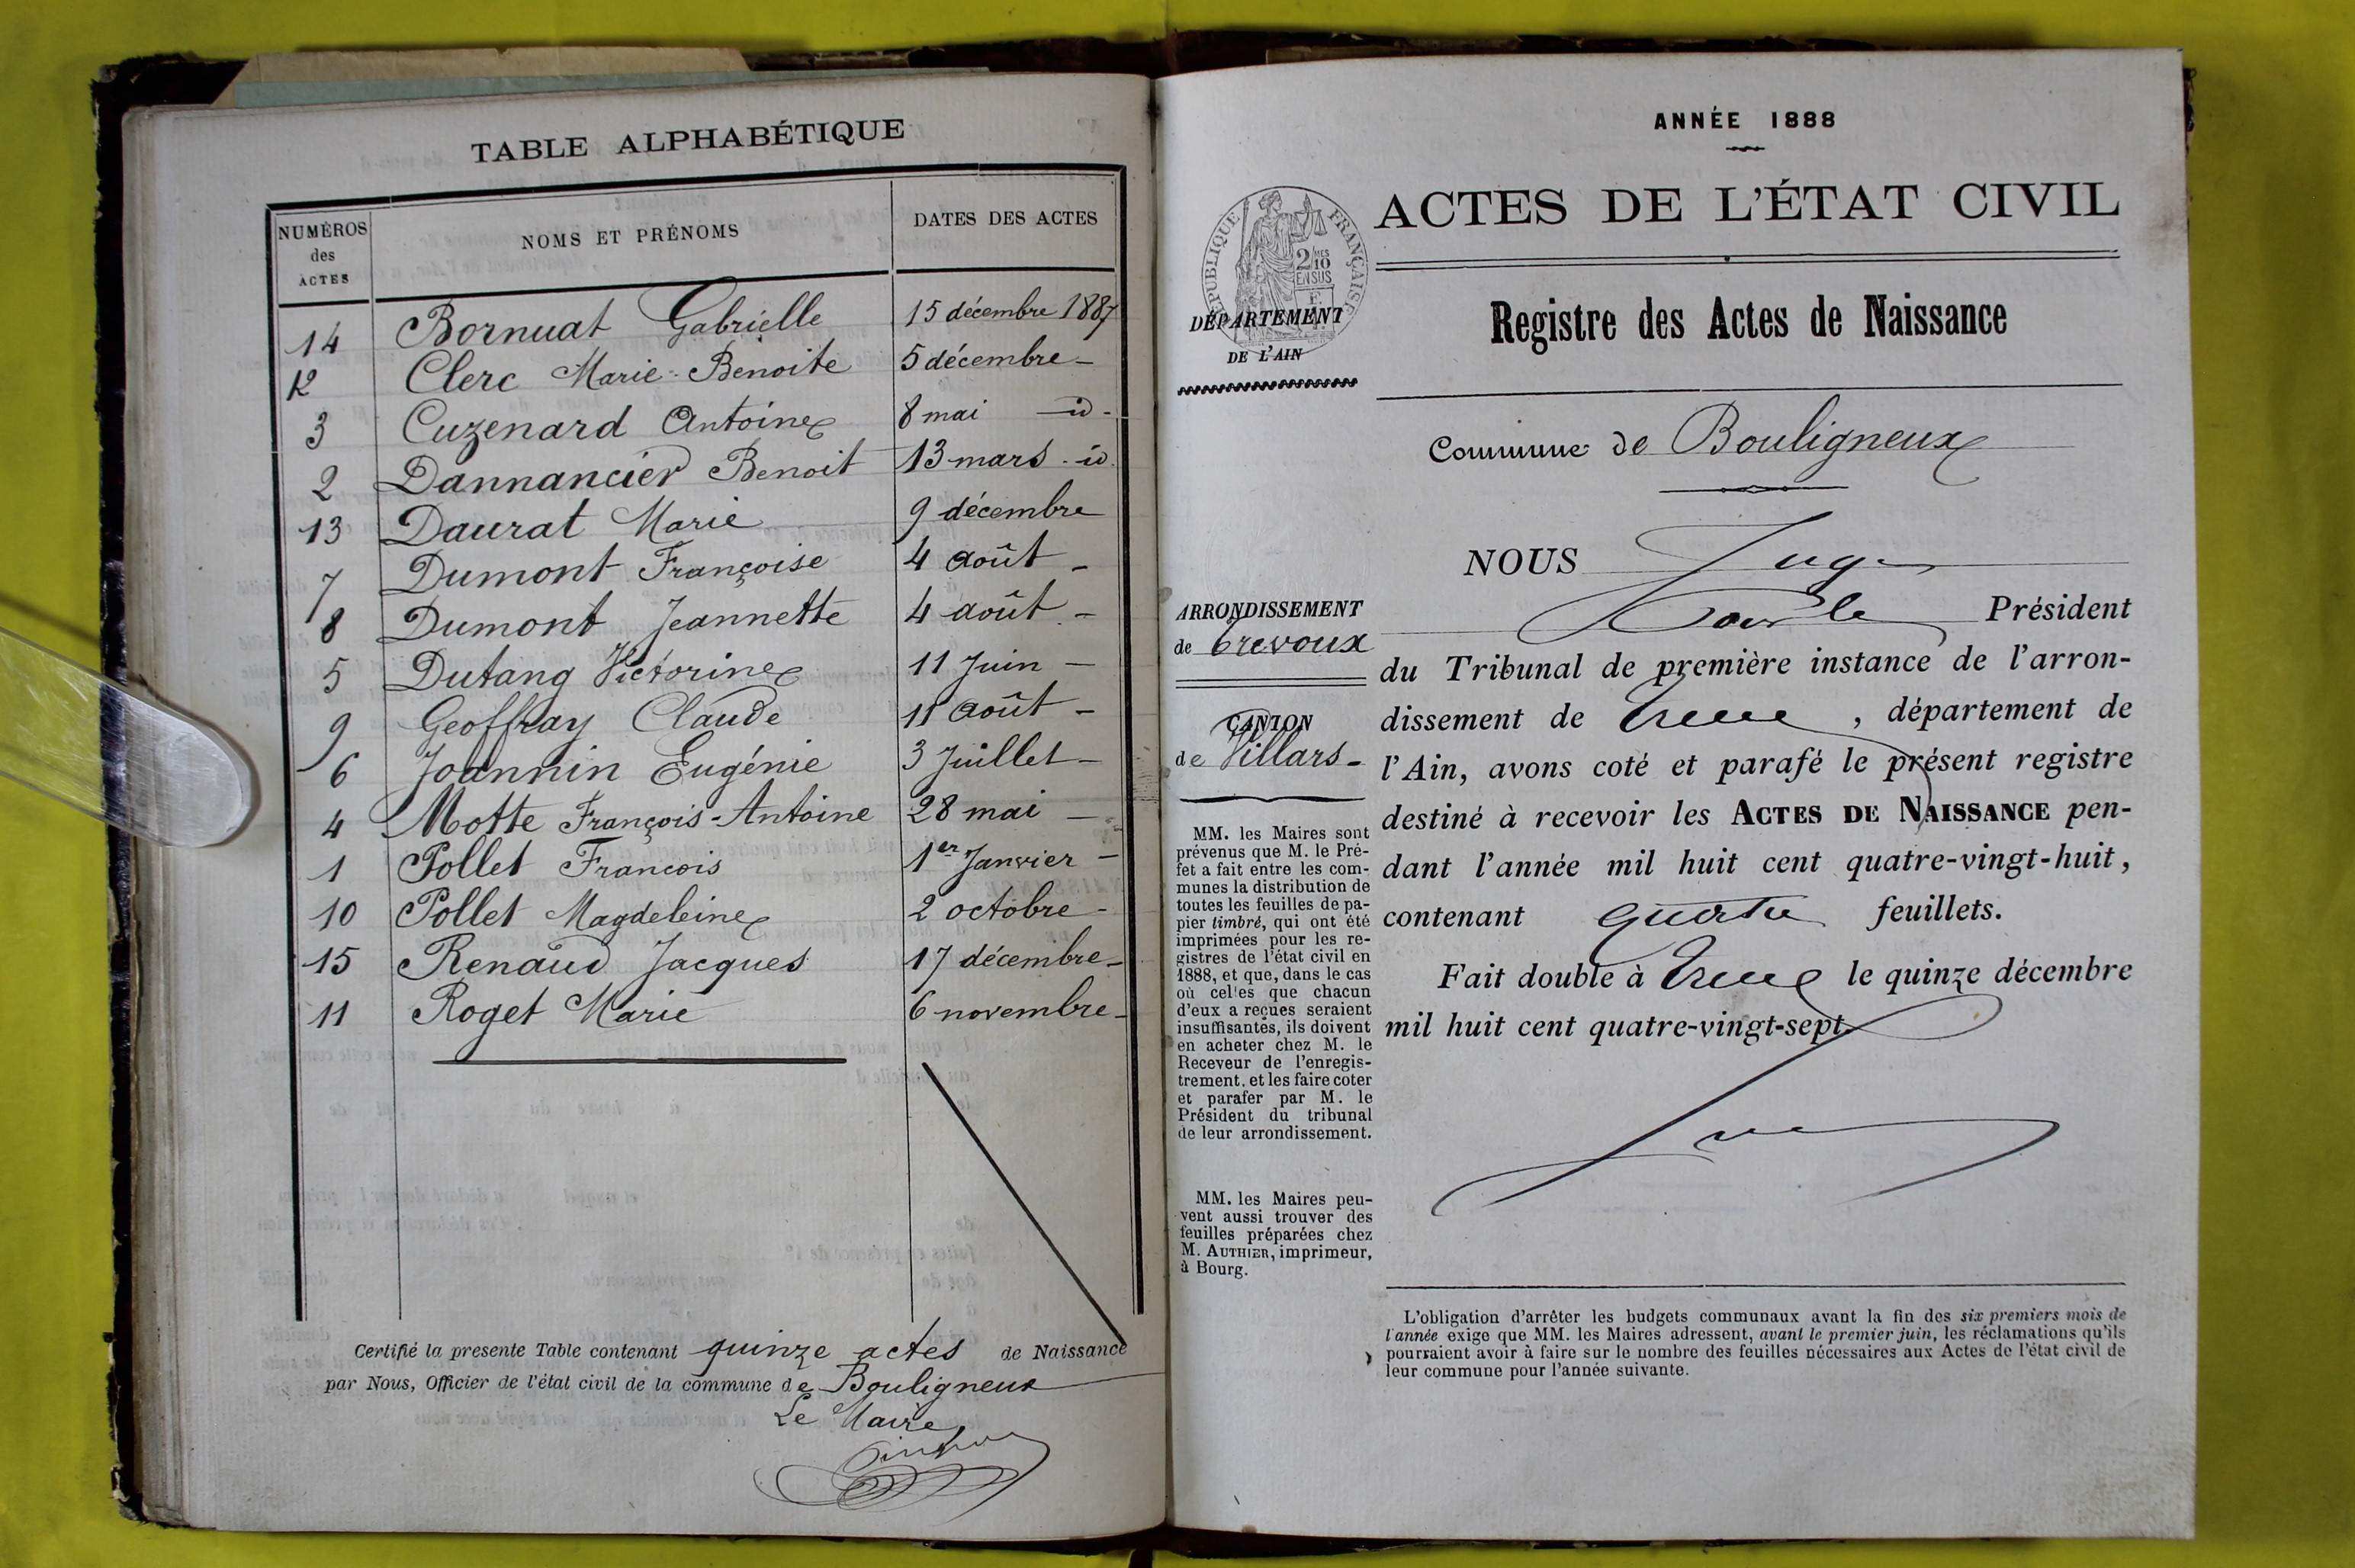 TABLE ALPHABÉTIQUE
NUMÉROS des ACTES
NOMS ET PRÉNOMS
DATES DES ACTES
14 Bornuat Gabrielle 15 décembre 1887
12 Clerc Marie-Benoite 5 décembre -
3 Cuzenard Antoine 8 mai - id -
2 Dannancier Benoit 13 mars - id.
13 Daurat Marie 9 décembre
7 Dumont Françoise 4 août -
8 Dumont Jeannette 4 août -
5 Dutang Victorine 11 Juin -
9 Geoffray Claude 11 août -
6 Joannin Eugénie 3 Juillet -
4 Motte François-Antoine 28 mai -
1 Pollet Francois 1er Janvier -
10 Pollet Magdeleine 2 octobre -
15 Renaud Jacques 17 décembre -
11 Roget Marie 6 novembre -
Certifié la presente Table contenant quinze actes de Naissance
par Nous, Officier de l'état civil de la commune de Bouligneux
Le Maire
ANNÉE 1888
ACTES DE L'ÉTAT CIVIL
RÉPUBLIQUE FRANÇAISE
2/10 MES
EN SUS
DÉPARTEMENT
DE L'AIN
Registre des Actes de Naissance
Commune de Bouligneux
ARRONDISSEMENT
de Trevoux
CANTON
de Villars -
MM. les Maires sont
prévenus que M. le Pré-
fet a fait entre les com-
munes la distribution de
toutes les feuilles de pa-
pier timbré, qui ont été
imprimées pour les re-
gistres de l'état civil en
1888, et que, dans le cas
où celles que chacun
d'eux a reçues seraient
insuffisantes, ils doivent
en acheter chez M. le
Receveur de l'enregis-
trement, et les faire coter
et parafer par M. le
Président du tribunal
de leur arrondissement.
MM. les Maires peu-
vent aussi trouver des
feuilles préparées chez
M. AUTHIER, imprimeur,
à Bourg.
NOUS Juge
pour le Président
du Tribunal de première instance de l'arron-
dissement de , département de
l'Ain, avons coté et parafé le présent registre
destiné à recevoir les ACTES DE NAISSANCE pen-
dant l'année mil huit cent quatre-vingt-huit,
contenant quatre feuillets.
Fait double à le quinze décembre
mil huit cent quatre-vingt-sept.
L'obligation d'arrêter les budgets communaux avant la fin des six premiers mois de
l'année exige que MM. les Maires adressent, avant le premier juin, les réclamations qu'ils
pourraient avoir à faire sur le nombre des feuilles nécessaires aux Actes de l'état civil de
leur commune pour l'année suivante.